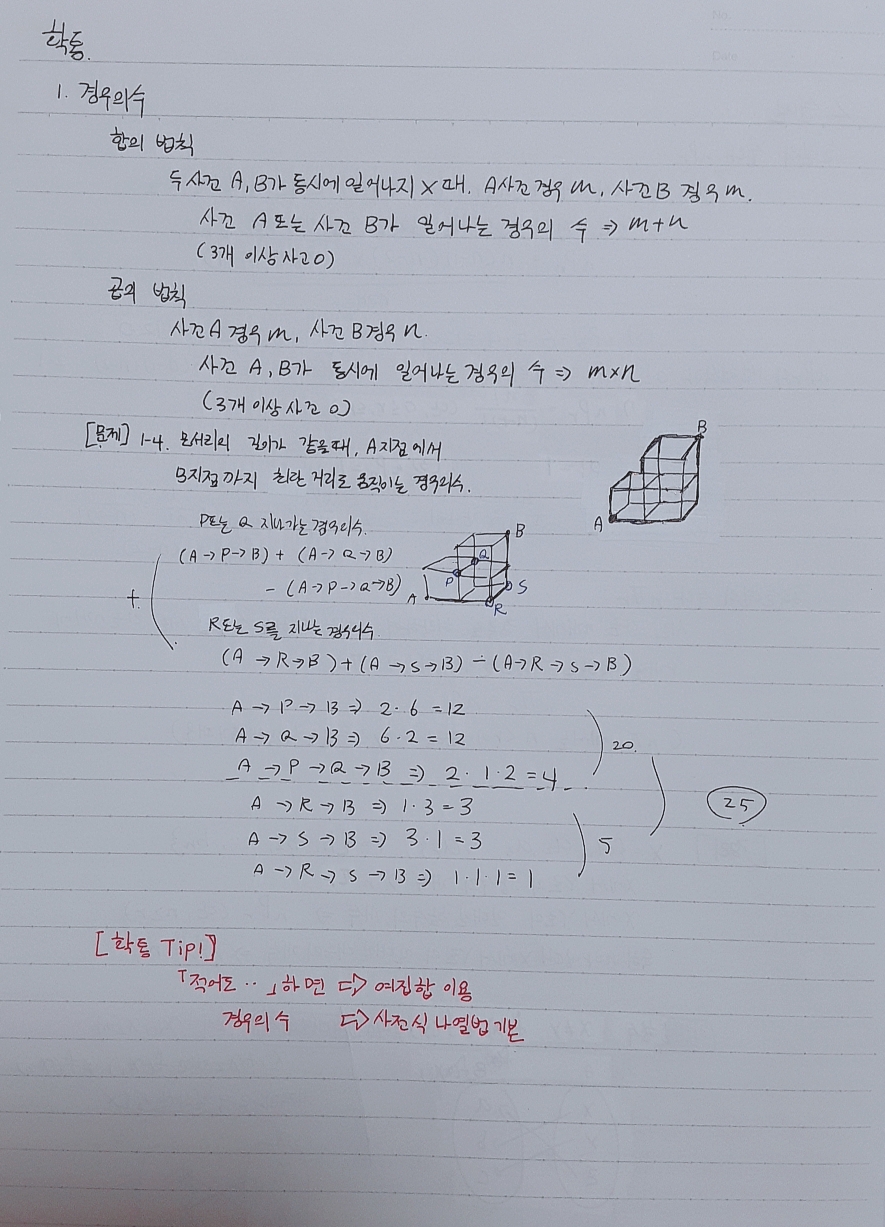 확통.
1. 경우의수
합의 법칙
두 사건 A, B가 동시에 일어나지 X 때. A사건 경우 m, 사건 B 경우 m.
사건 A 또는 사건 B가 일어나는 경우의 수 ⇒ m+n
(3개 이상 사고 0)
곱의 법칙
사건 A 경우 m, 사건 B 경우 n.
사건 A, B가 동시에 일어나는 경우의 수 ⇒ m×n
(3개 이상 사건 0)
[문제] 1-4. 모서리의 길이가 같을때, A지점에서
B지점까지 최단 거리로 움직이는 경우의수.
A
B
P또는 Q 지나가는 경우의수.
(A→P→B) + (A→Q→B)
- (A→P→Q→B)
+
A
B
P
Q
R
S
R또는 S를 지나는 경우의수
(A→R→B) + (A→S→B) - (A→R→S→B)
A → P → B ⇒ 2·6 = 12
A → Q → B ⇒ 6·2 = 12
A → P → Q → B ⇒ 2·1·2 = 4
20.
A → R → B ⇒ 1·3 = 3
A → S → B ⇒ 3·1 = 3
A → R → S → B ⇒ 1·1·1 = 1
5
25
[확통 Tip!]
「적어도 ··」하면 ⇨ 여집합 이용
경우의 수 ⇨ 사전식 나열법 기본